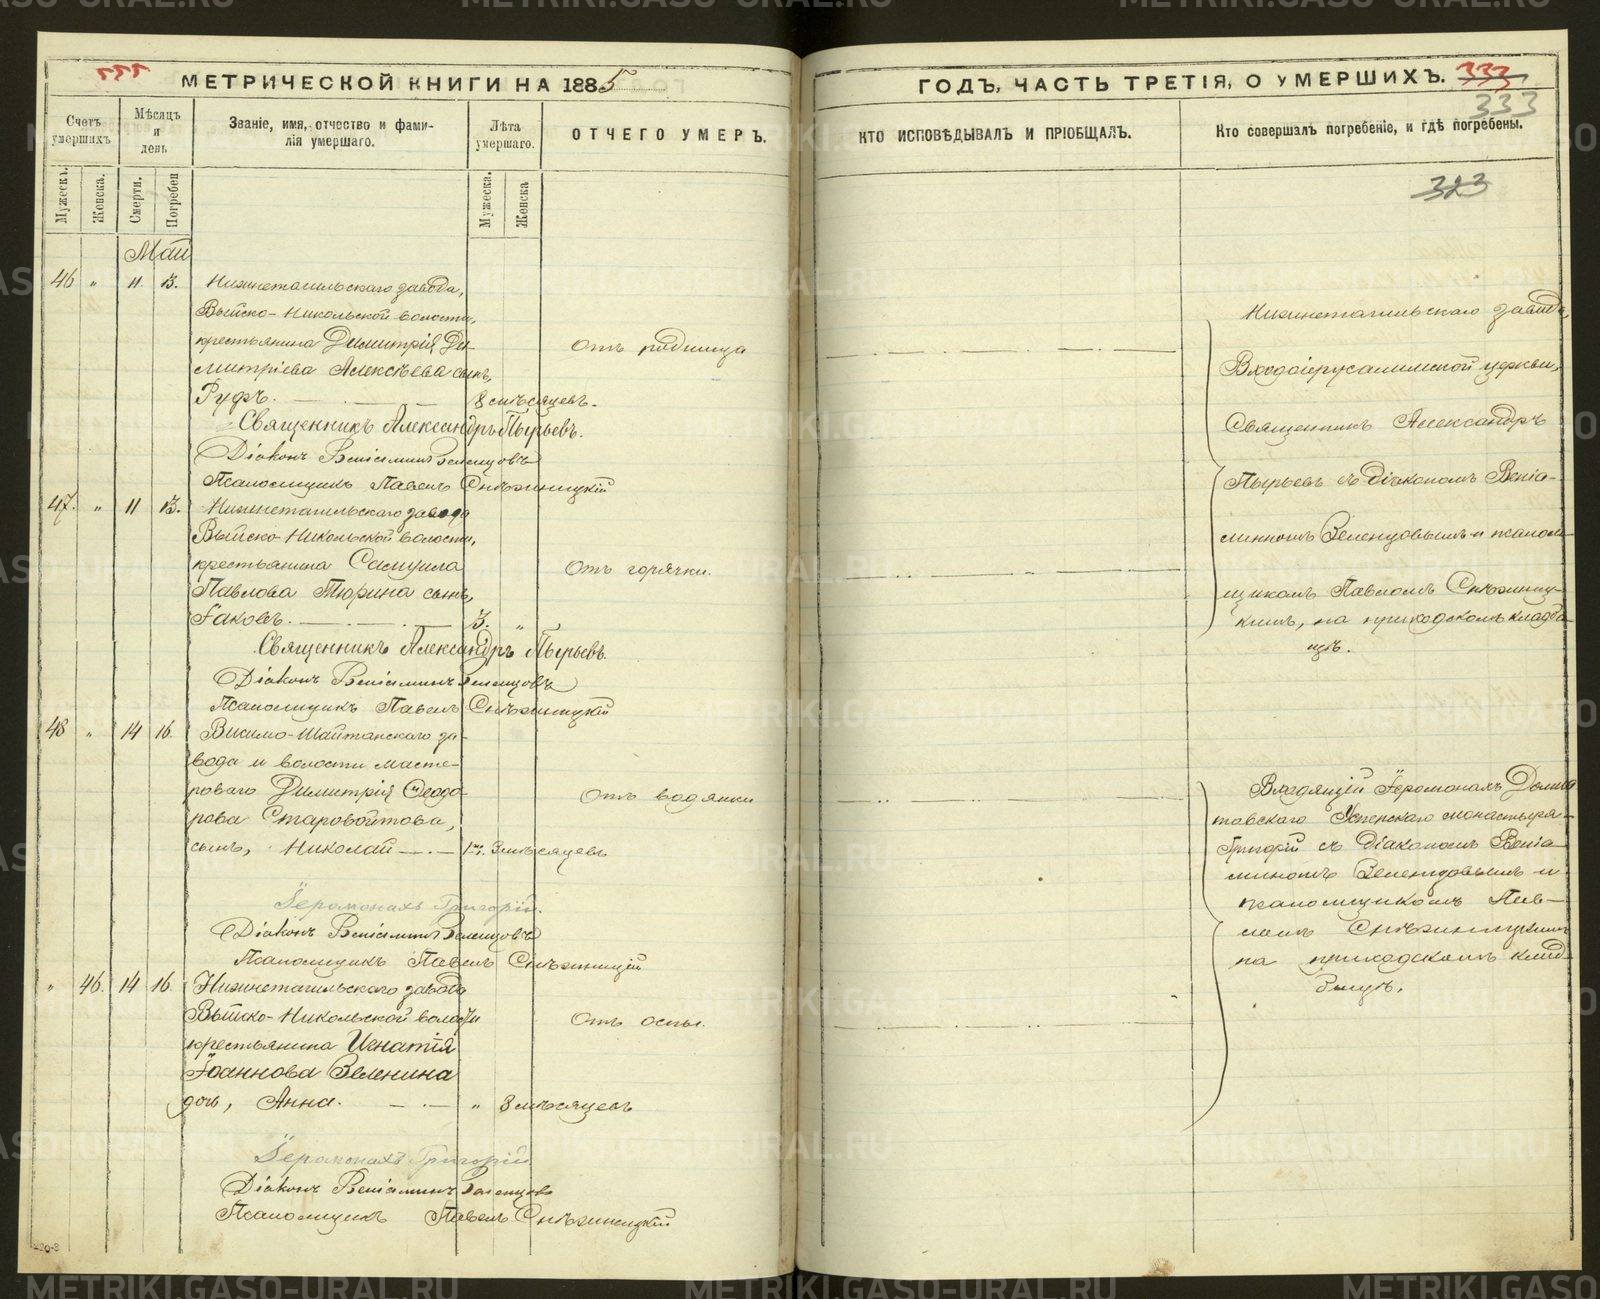 МЕТРИЧЕСКОЙ КНИГИ НА 1885
ГОДЪ, ЧАСТЬ ТРЕТІЯ, О УМЕРШИХЪ.
333
333
323
Счетъ умершихъ
Мѣсяцъ и день
Званіе, имя, отчество и фами-
лія умершаго.
Лѣта умершаго.
ОТЧЕГО УМЕРЪ.
КТО ИСПОВѢДЫВАЛЪ И ПРІОБЩАЛЪ.
Кто совершалъ погребеніе, и гдѣ погребены.
Мужескъ.
Женска.
Смерти.
Погребен
Мужеска.
Женска
Май
46 " 11 13. Нижнетагильскаго завода,
Выйско-Никольской волости,
крестьянина Димитрія Ди-
митріева Алексѣева сынъ,
Руфъ. 8 мѣсяцевъ.
Отъ родимца
Священникъ Александръ Пырьевъ.
Діаконъ Веніаминъ Зеленцовъ
Псаломщикъ Павелъ Снѣжницкій
47. " 11 13. Нижнетагильскаго завода
Выйско-Никольской волости,
крестьянина Самуила
Павлова Тюрина сынъ,
Іаковъ. 3. "
Отъ горячки.
Священникъ Александръ Пырьевъ.
Діаконъ Веніаминъ Зеленцовъ
Псаломщикъ Павелъ Снѣжницкій
48 " 14 16. Висимо-Шайтанскаго за-
вода и волости масте-
роваго Димитрія Ѳеодо-
рова Старовойтова,
сынъ, Николай мѣсяцевъ
Отъ водянки
Іеромонахъ Григорій.
Діаконъ Веніаминъ Зеленцовъ
Псаломщикъ Павелъ Снѣжницкій
" 46. 14 16. Нижнетагильскаго завода
Выйско-Никольской волости
крестьянина Игнатія
Іоаннова Зеленина
дочь, Анна. " 8 мѣсяцевъ
Отъ оспы.
Іеромонахъ Григорій
Діаконъ Веніаминъ Зеленцовъ
Псаломщикъ Павелъ Снѣжницкій
Нижнетагильскаго завода,
Входоіерусалимской церкви,
Священникъ Александръ
Пырьевъ съ діакономъ Веніа-
миномъ Зеленцовымъ и псалом-
щикомъ Павломъ Снѣжниц-
кимъ, на приходскомъ кладби-
щѣ.
Іеромонахъ Далма-
товскаго Успенскаго монастыря
Григорій съ діакономъ Веніа-
миномъ Зеленцовымъ и
псаломщикомъ Пав-
ломъ Снѣжницкимъ
на приходскомъ клад-
бищѣ.
METRIKI.GASO-URAL.RU